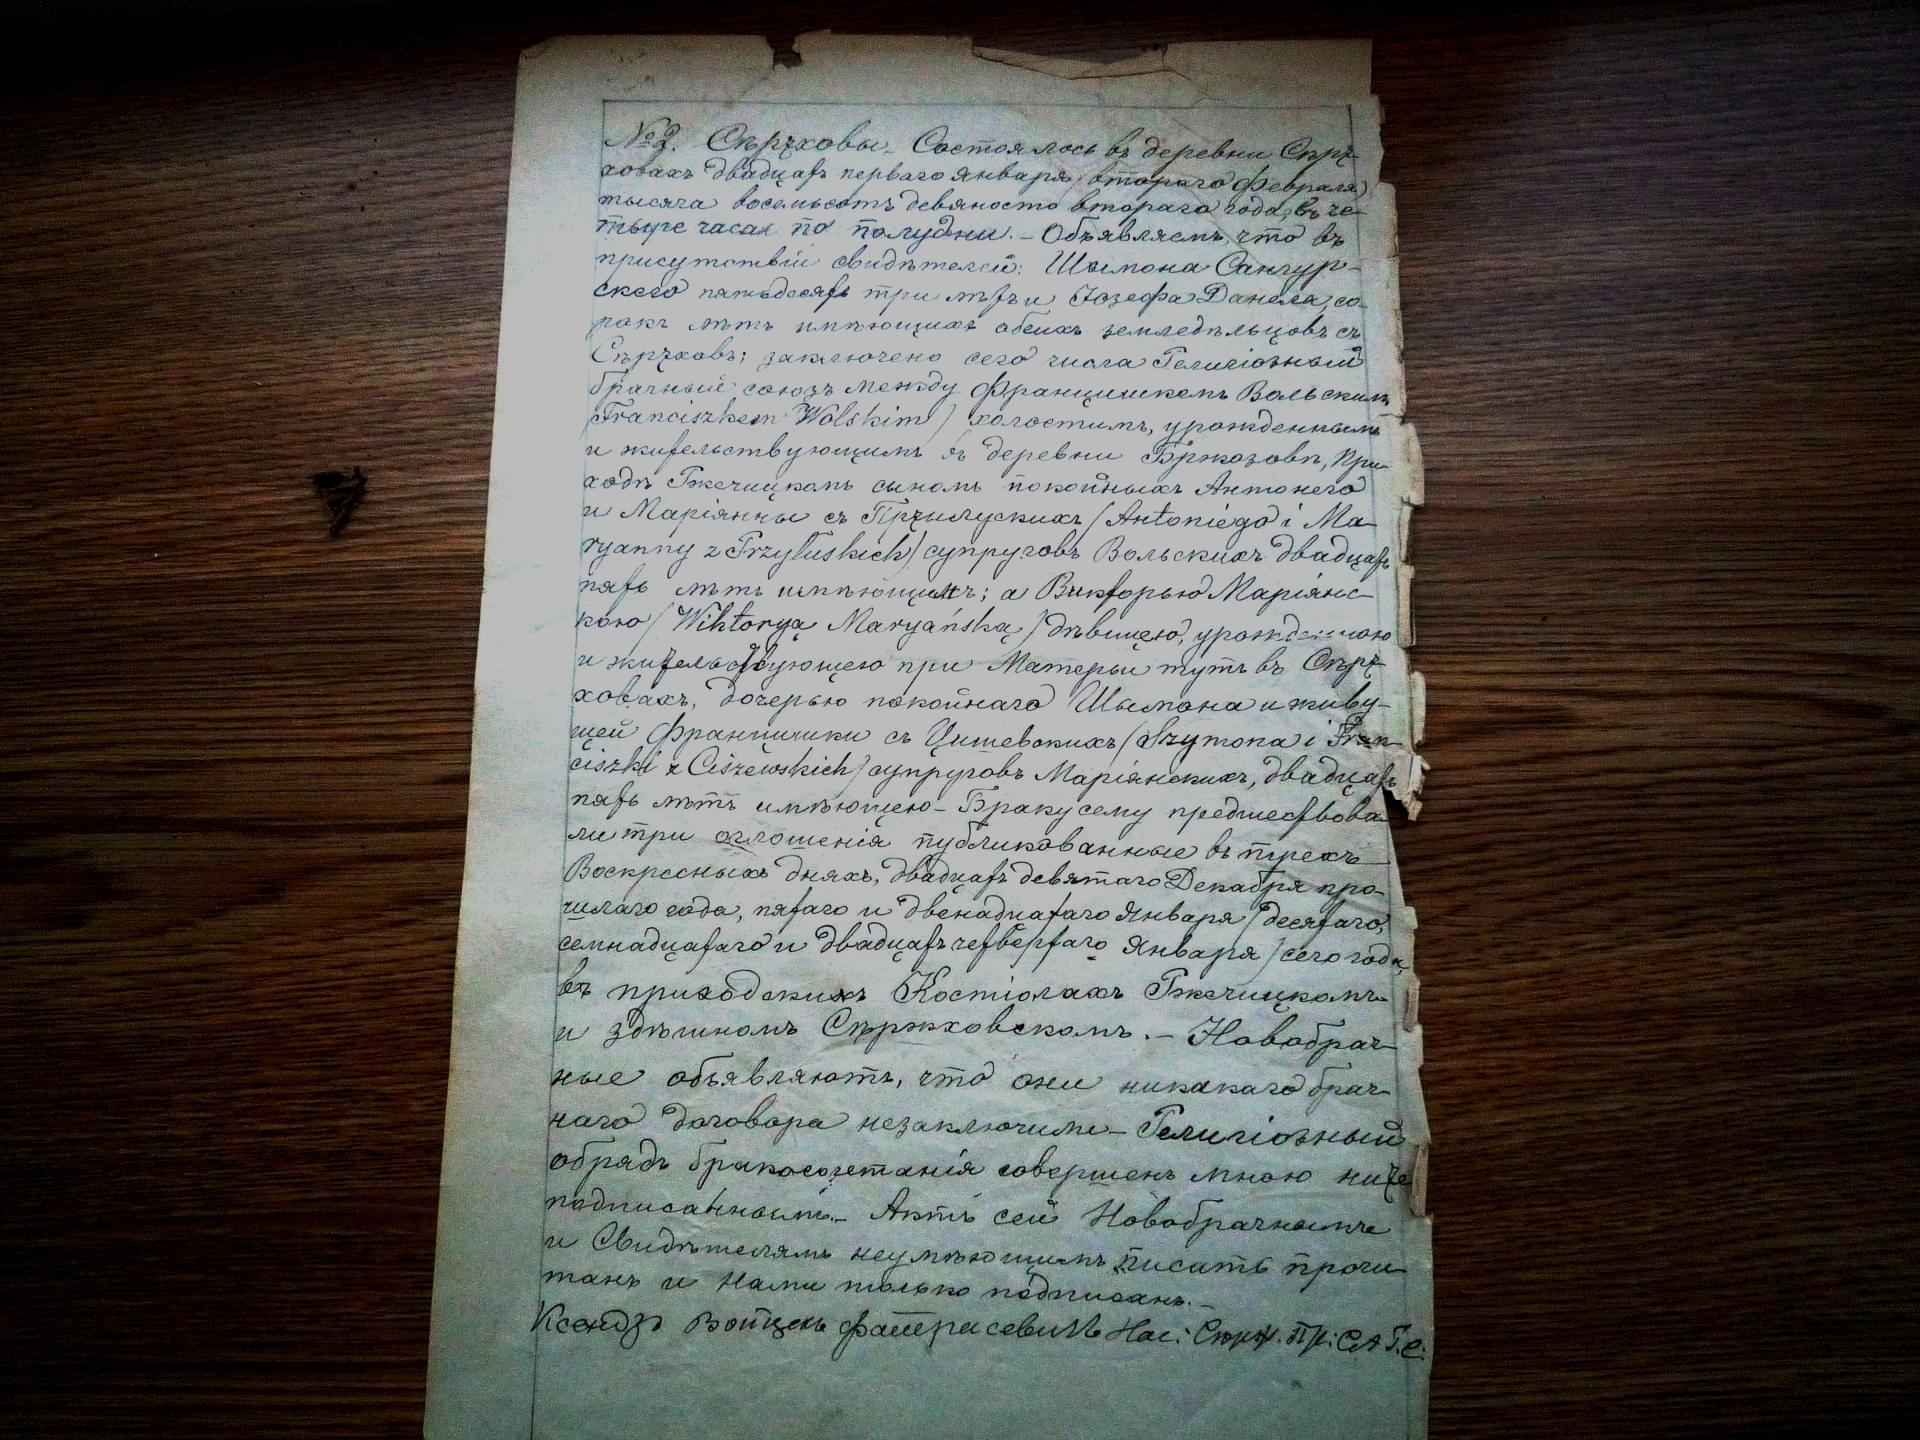 № 2. Сѣрҙховы – Состоялось въ деревни Сѣрҙ-
ховахъ двадцать перваго Января /втораго Февраля/
тысяча восемьсотъ девяносто втораго года, въ че-
тыре часа по полудни. – Объявляемъ, что въ
присутствіи свидѣтелей: Шымона
скего пятьдесять три лѣтъ и Іозефа Данеля, со-
рокъ лѣтъ имѣющихъ обеихъ земледѣльцовъ съ
заключено сего числа Религіозный
брачный союзъ между Францишкемъ Вольскимъ
/Franciszkem Wolskim/ холостимъ, урожденнымъ
и жительствующимъ въ деревни Бржозовѣ, При-
ходѣ Гжечицкомъ сыномъ покойныхъ Антонего
и Маріянны съ Пршилускихъ /Antoniego i Ma-
ryanny z Przyłuskich/ супруговъ Вольскихъ двадцать
пять лѣтъ имѣющимъ; а Викторью Маріянс-
кою /Wiktoryą Maryańską/ дѣвицею, урожденною
и жительствующею при Матерьи тутъ въ Сѣрҙ-
ховахъ, дочерью покойнаго Шымона и живу-
щей Францишки съ Цишевскихъ /Szymona i Fran-
ciszki z Ciszewskich/ супруговъ Маріянскихъ, двадцать
пять лѣтъ имѣющею – Браку сему предшествова
ли три оглошенія публикованные въ трехъ
Воскресныхъ дняхъ, двадцать девятаго Декабря про-
шлаго года, пятаго и двенадцатаго Января /десятаго,
семнадцатаго и двадцать четвертаго Января/ сего года,
въ приходскихъ Костіолахъ Гжечицкомъ
и здѣшномъ Сѣржховскомъ. – Новобрач-
ные объявляютъ, что они никакаго брач-
наго договора незаключили – Религіозный
обрядъ бракосочетанія совершенъ мною ниже
подписаннымъ. – Актъ сей Новобрачнымъ
и Свидѣтелямъ неумѣющимъ писать прочи-
танъ и Нами только подписанъ. –
Ксендзъ Войцехъ Нас: Сѣрж. Пр: